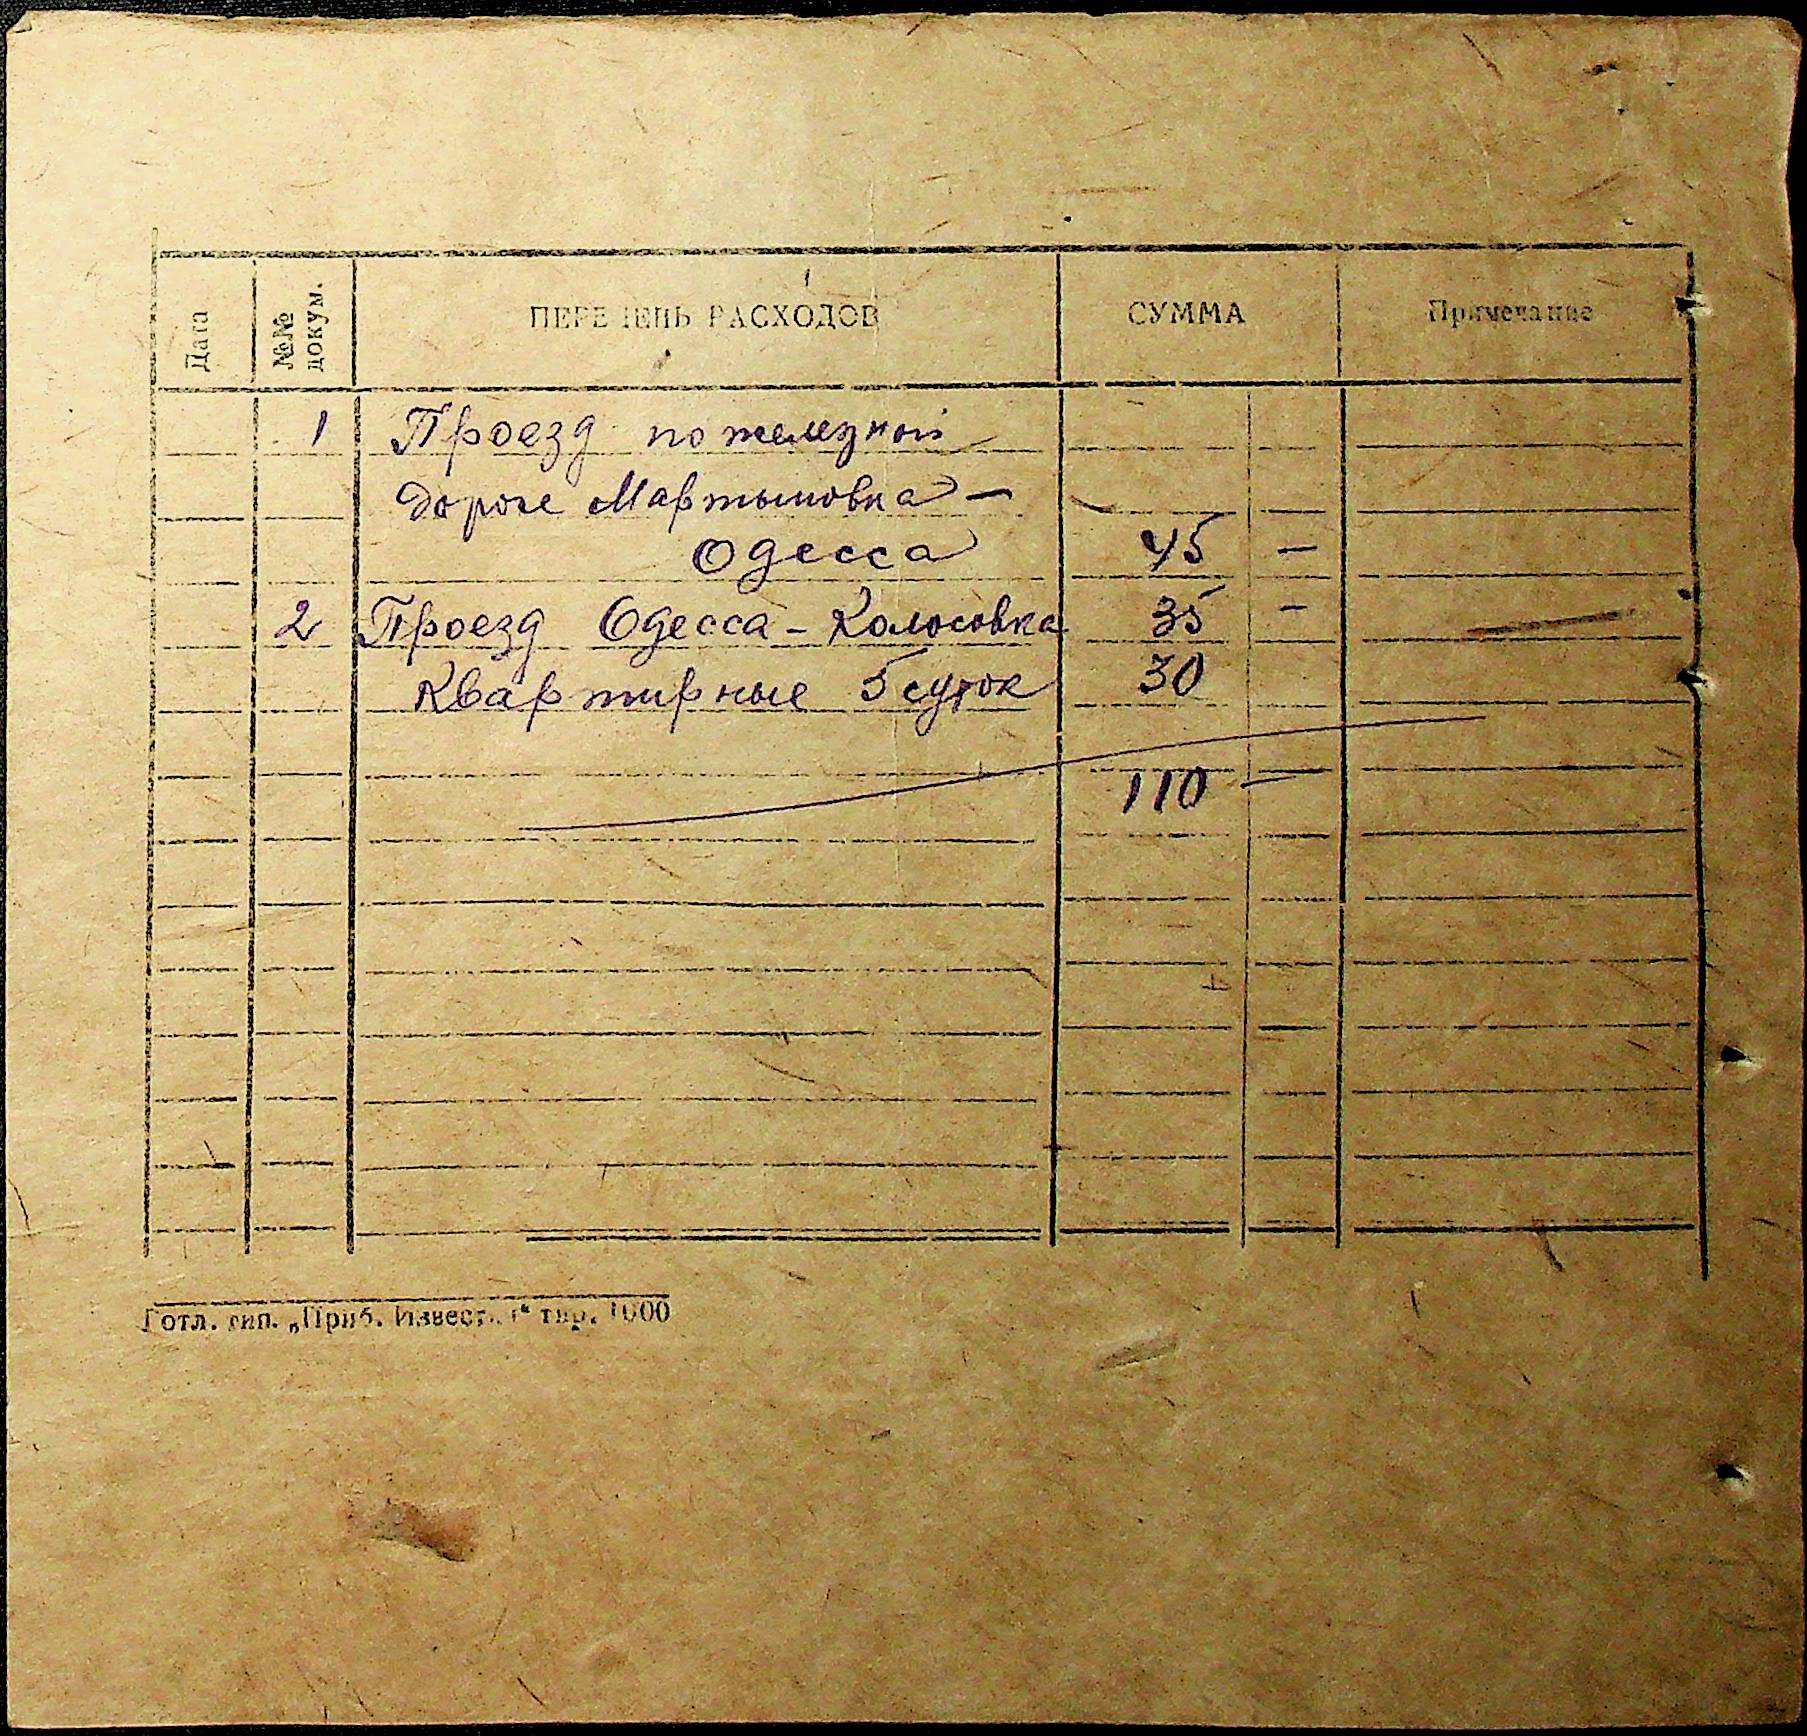 Дата
№№ докум.
ПЕРЕЧЕНЬ РАСХОДОВ
СУММА
Примечание
1 Проезд по железной
дороге Мартыновка —
Одесса 45 —
2 Проезд Одесса - Колосовка 35 —
Квартирные 5 суток 30
110 —
Готл. тип. „Приб. Известия“ тир. 1000